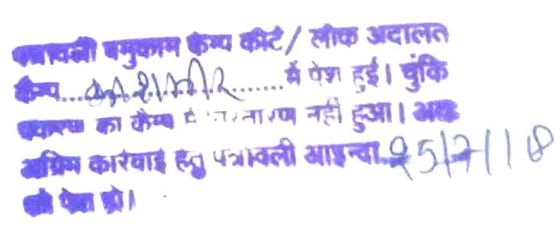 पत्रावली बमुकाम कैम्प कोर्ट/ लोक अदालत
कैम्प.................. में पेश हुई। चुंकि
प्रकरण का कैम्प में निस्तारण नहीं हुआ। अतः
अग्रिम कार्रवाई हेतु पत्रावली आइन्दा 25/7/18
को पेश हो।